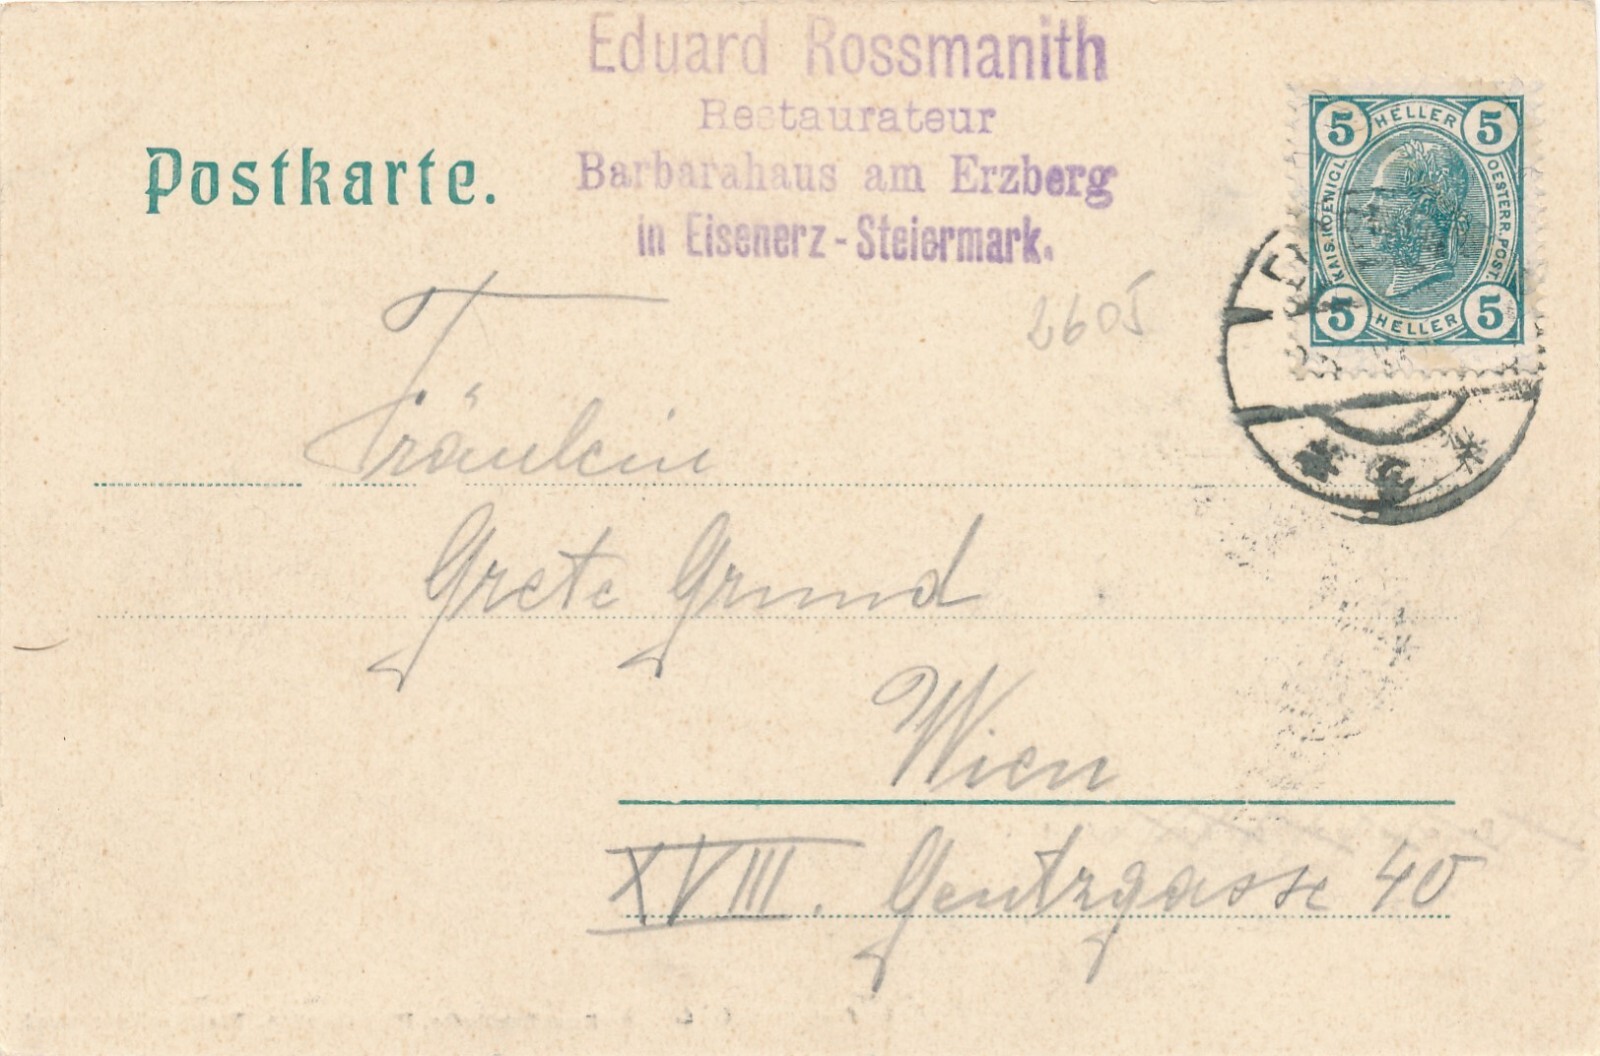 Eduard Rossmanith
Restaurateur
Barbarahaus am Erzberg
in Eisenerz - Steiermark.
Postkarte.
5 HELLER 5
KAIS. KOENIGL. OESTERR. POST.
5 HELLER 5
2605
Fräulein
Grete Grund
Wien
XVIII. Gentzgasse 40